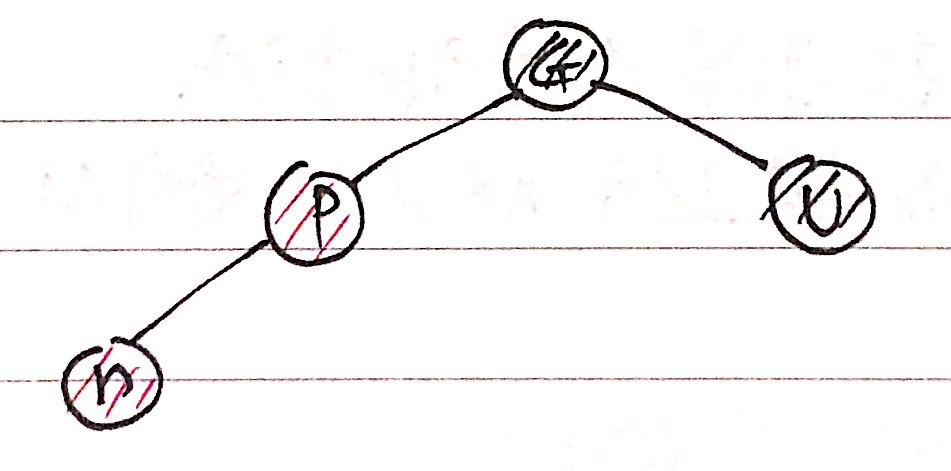 G
P
U
n